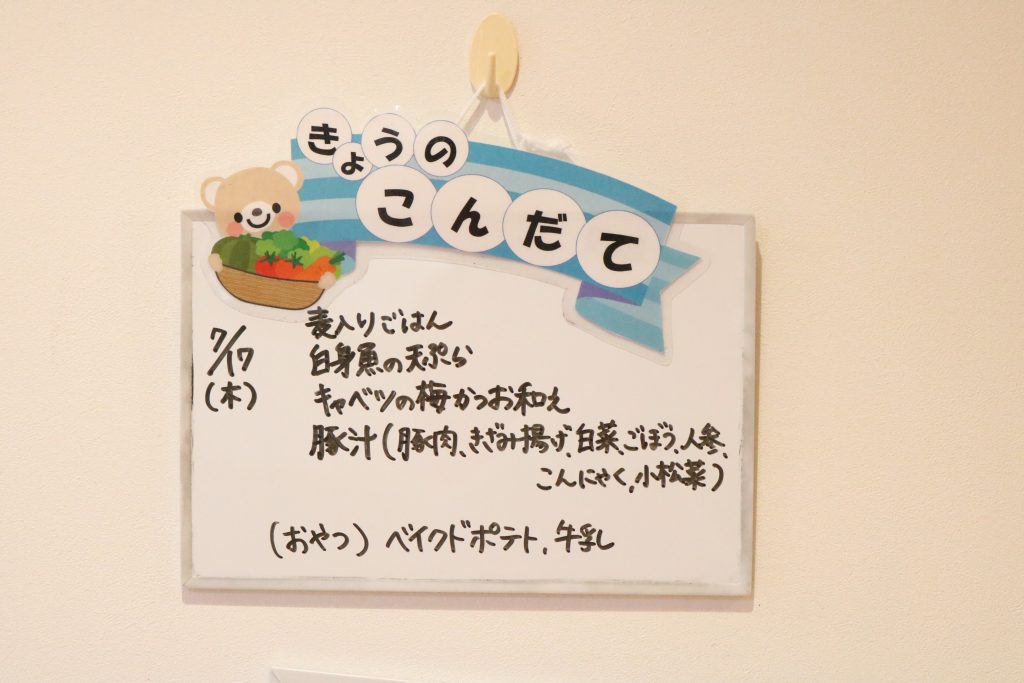 きょうの
こんだて
7/17
(木)
麦入りごはん
白身魚の天ぷら
キャベツの梅かつお和え
豚汁(豚肉、きざみ揚げ、白菜、ごぼう、人参、
こんにゃく、小松菜)
(おやつ) ベイクドポテト、牛乳